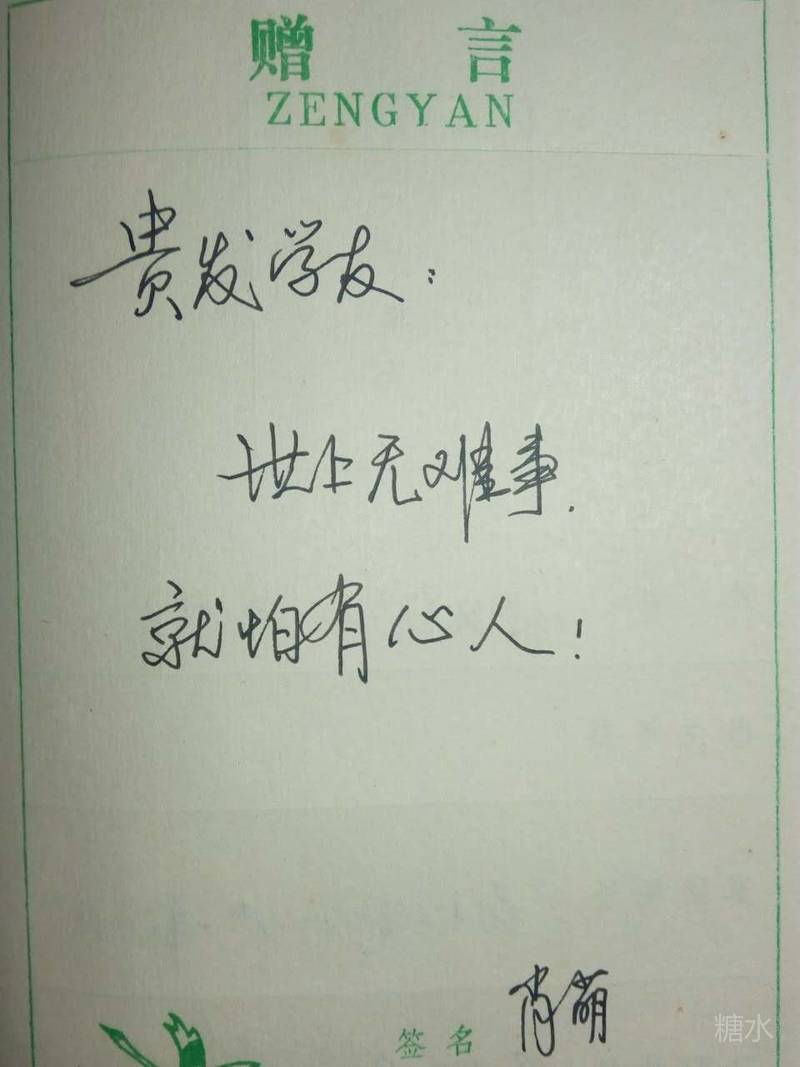 赠言
ZENGYAN
贵发学友：
世上无难事.
就怕有心人！
签名 肖萌
糖水